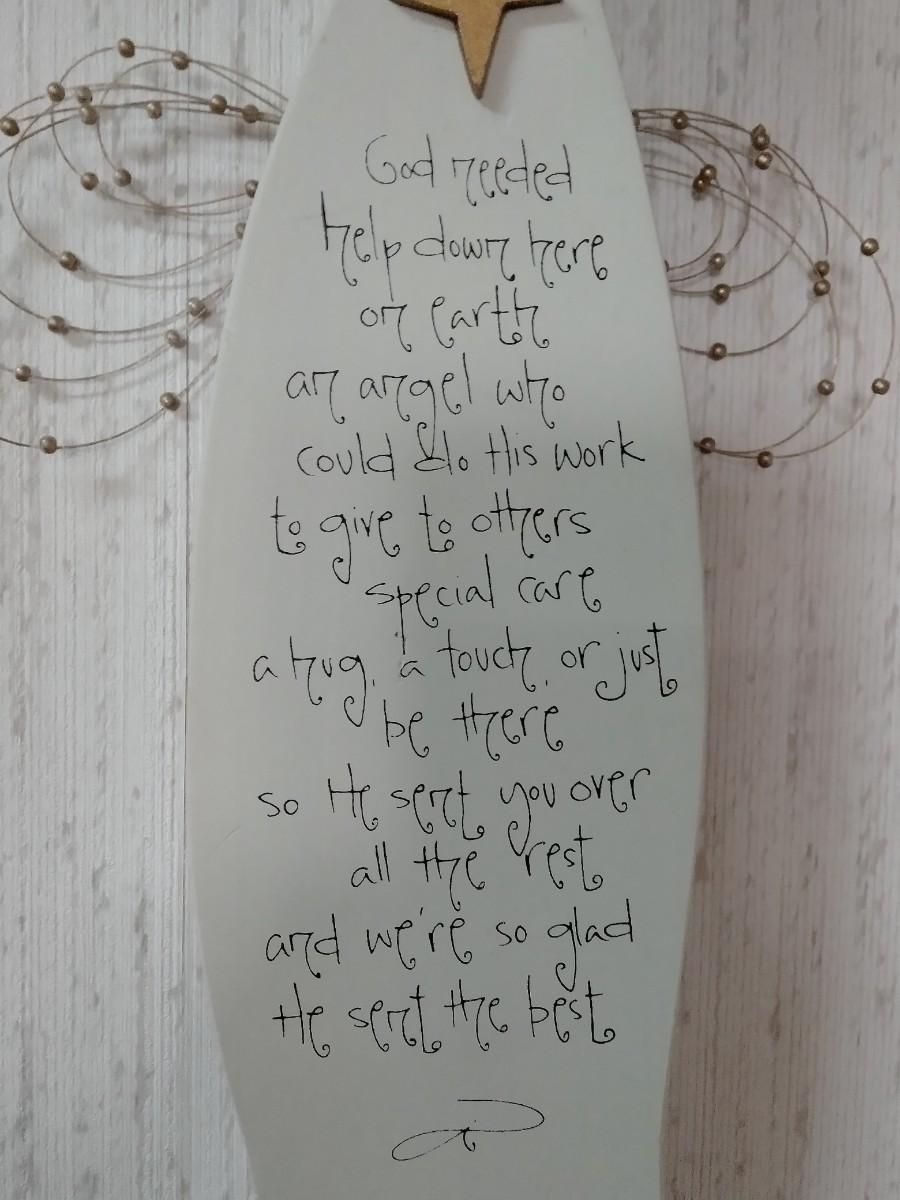 God needed
help down here
on earth
an angel who
could do His work
to give to others
special care
a hug, a touch, or just
be there
so He sent you over
all the rest
and we're so glad
He sent the best